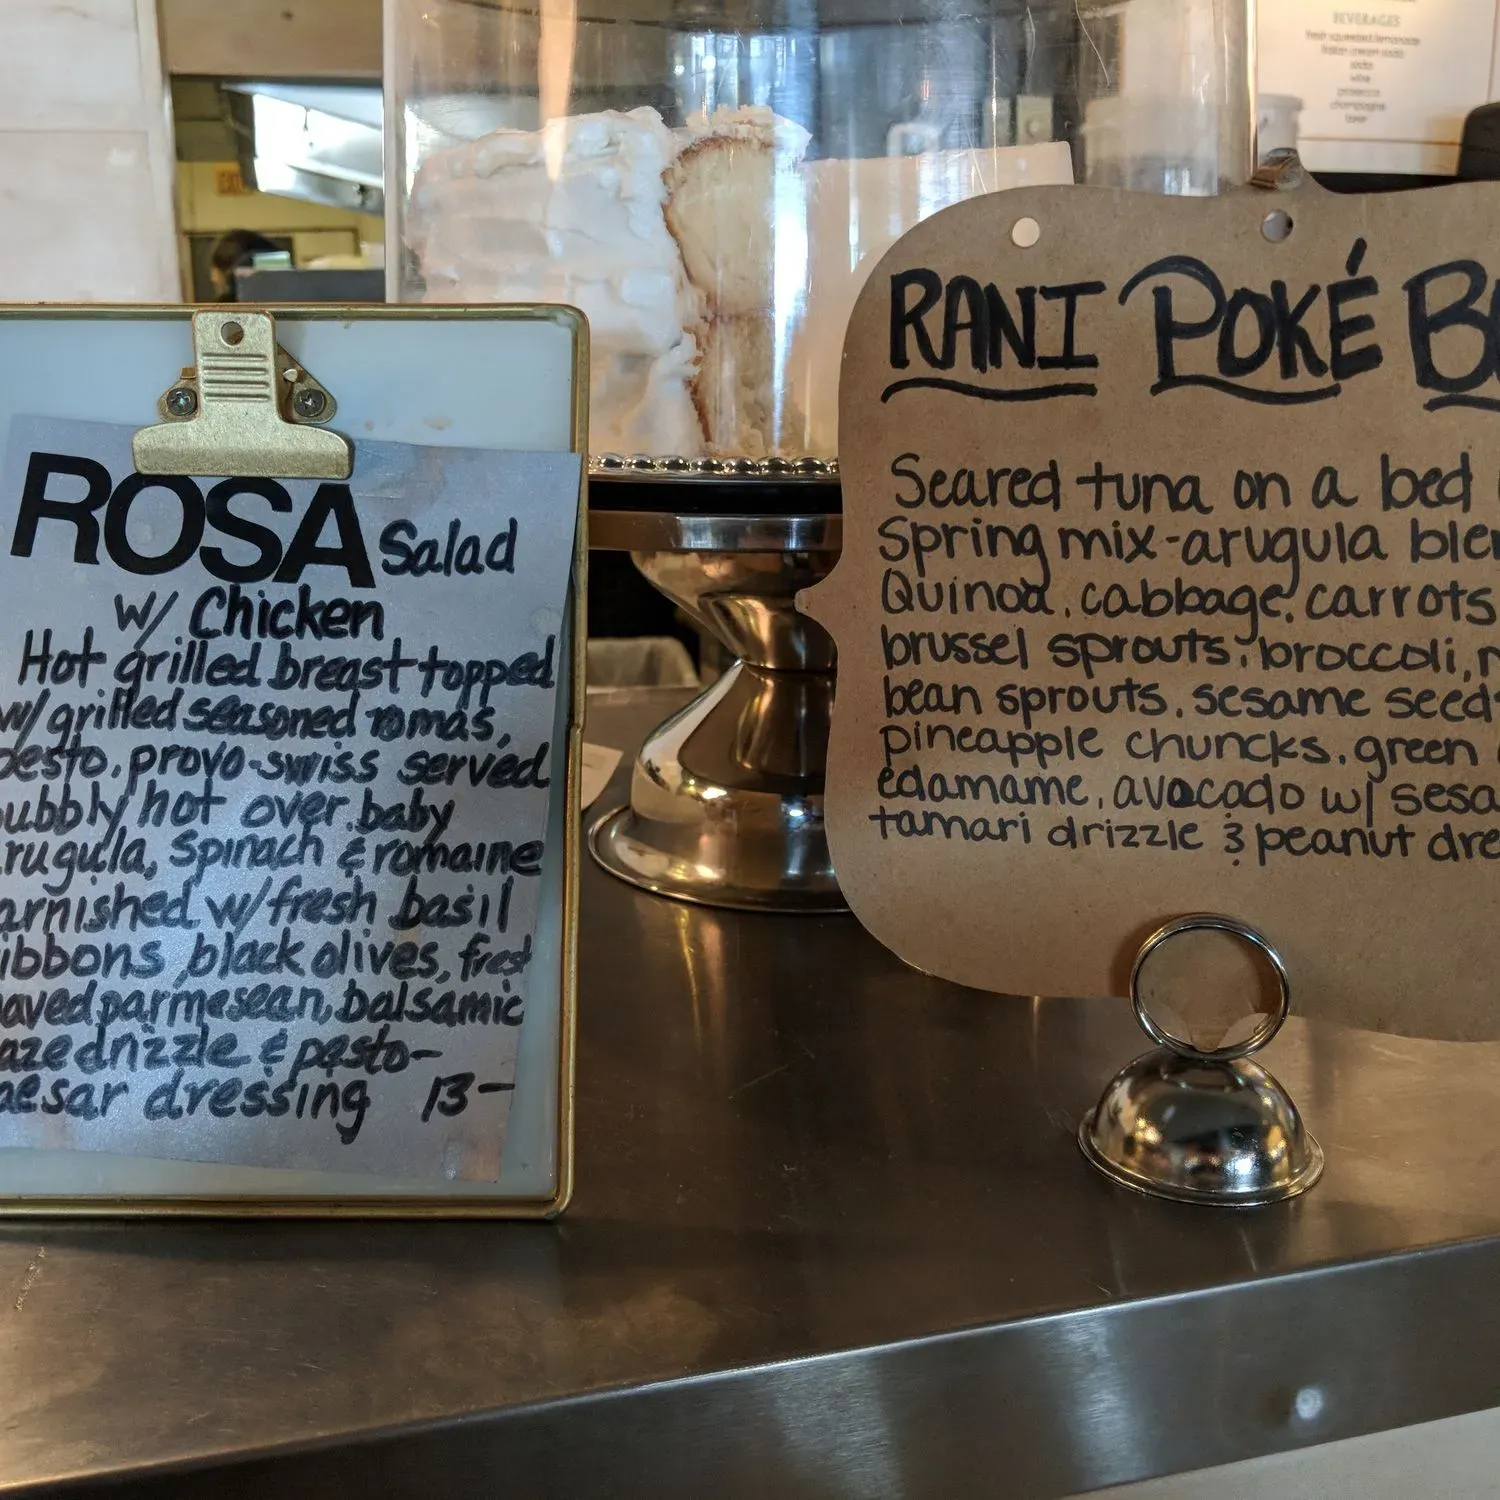 ROSA Salad
w/ Chicken
Hot grilled breast topped
w/ grilled seasoned romas,
pesto, provo-swiss served
ubbly hot over baby
rugula, spinach & romaine
arnished w/ fresh basil
ibbons, black olives, fresh
aved parmesean, balsamic
aze drizzle & pesto-
aesar dressing 13-
RANI POKÉ BO
Seared tuna on a bed
Spring mix-arugula blen
Quinoa, cabbage, carrots,
brussel sprouts, broccoli,
bean sprouts, sesame seed
pineapple chuncks, green
edamame, avocado w/ sesa
tamari drizzle & peanut dre
BEVERAGES
fresh squeezed lemonade
italian cream soda
soda
wine
prosecco
champagne
beer